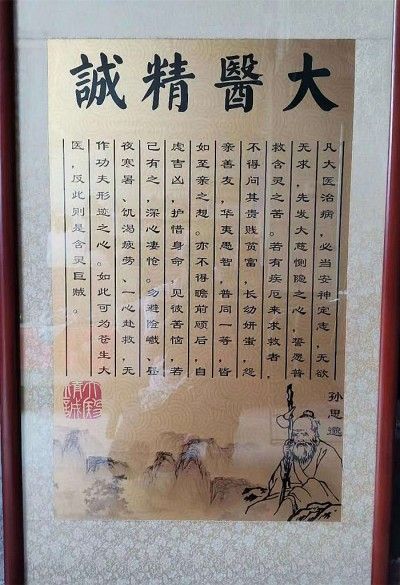 大醫精誠
凡大医治病，必当安神定志，无欲
无求，先发大慈恻隐之心，誓愿普
救含灵之苦。若有疾厄来求救者，
不得问其贵贱贫富，长幼妍蚩，怨
亲善友，华夷愚智，普同一等，皆
如至亲之想。亦不得瞻前顾后，自
虑吉凶，护惜身命，见彼苦恼，若
己有之，深心凄怆。勿避险巇、昼
夜寒暑、饥渴疲劳、一心赴救，无
作功夫形迹之心。如此可为苍生大
医，反此则是含灵巨贼。
孙思邈
大醫
精誠